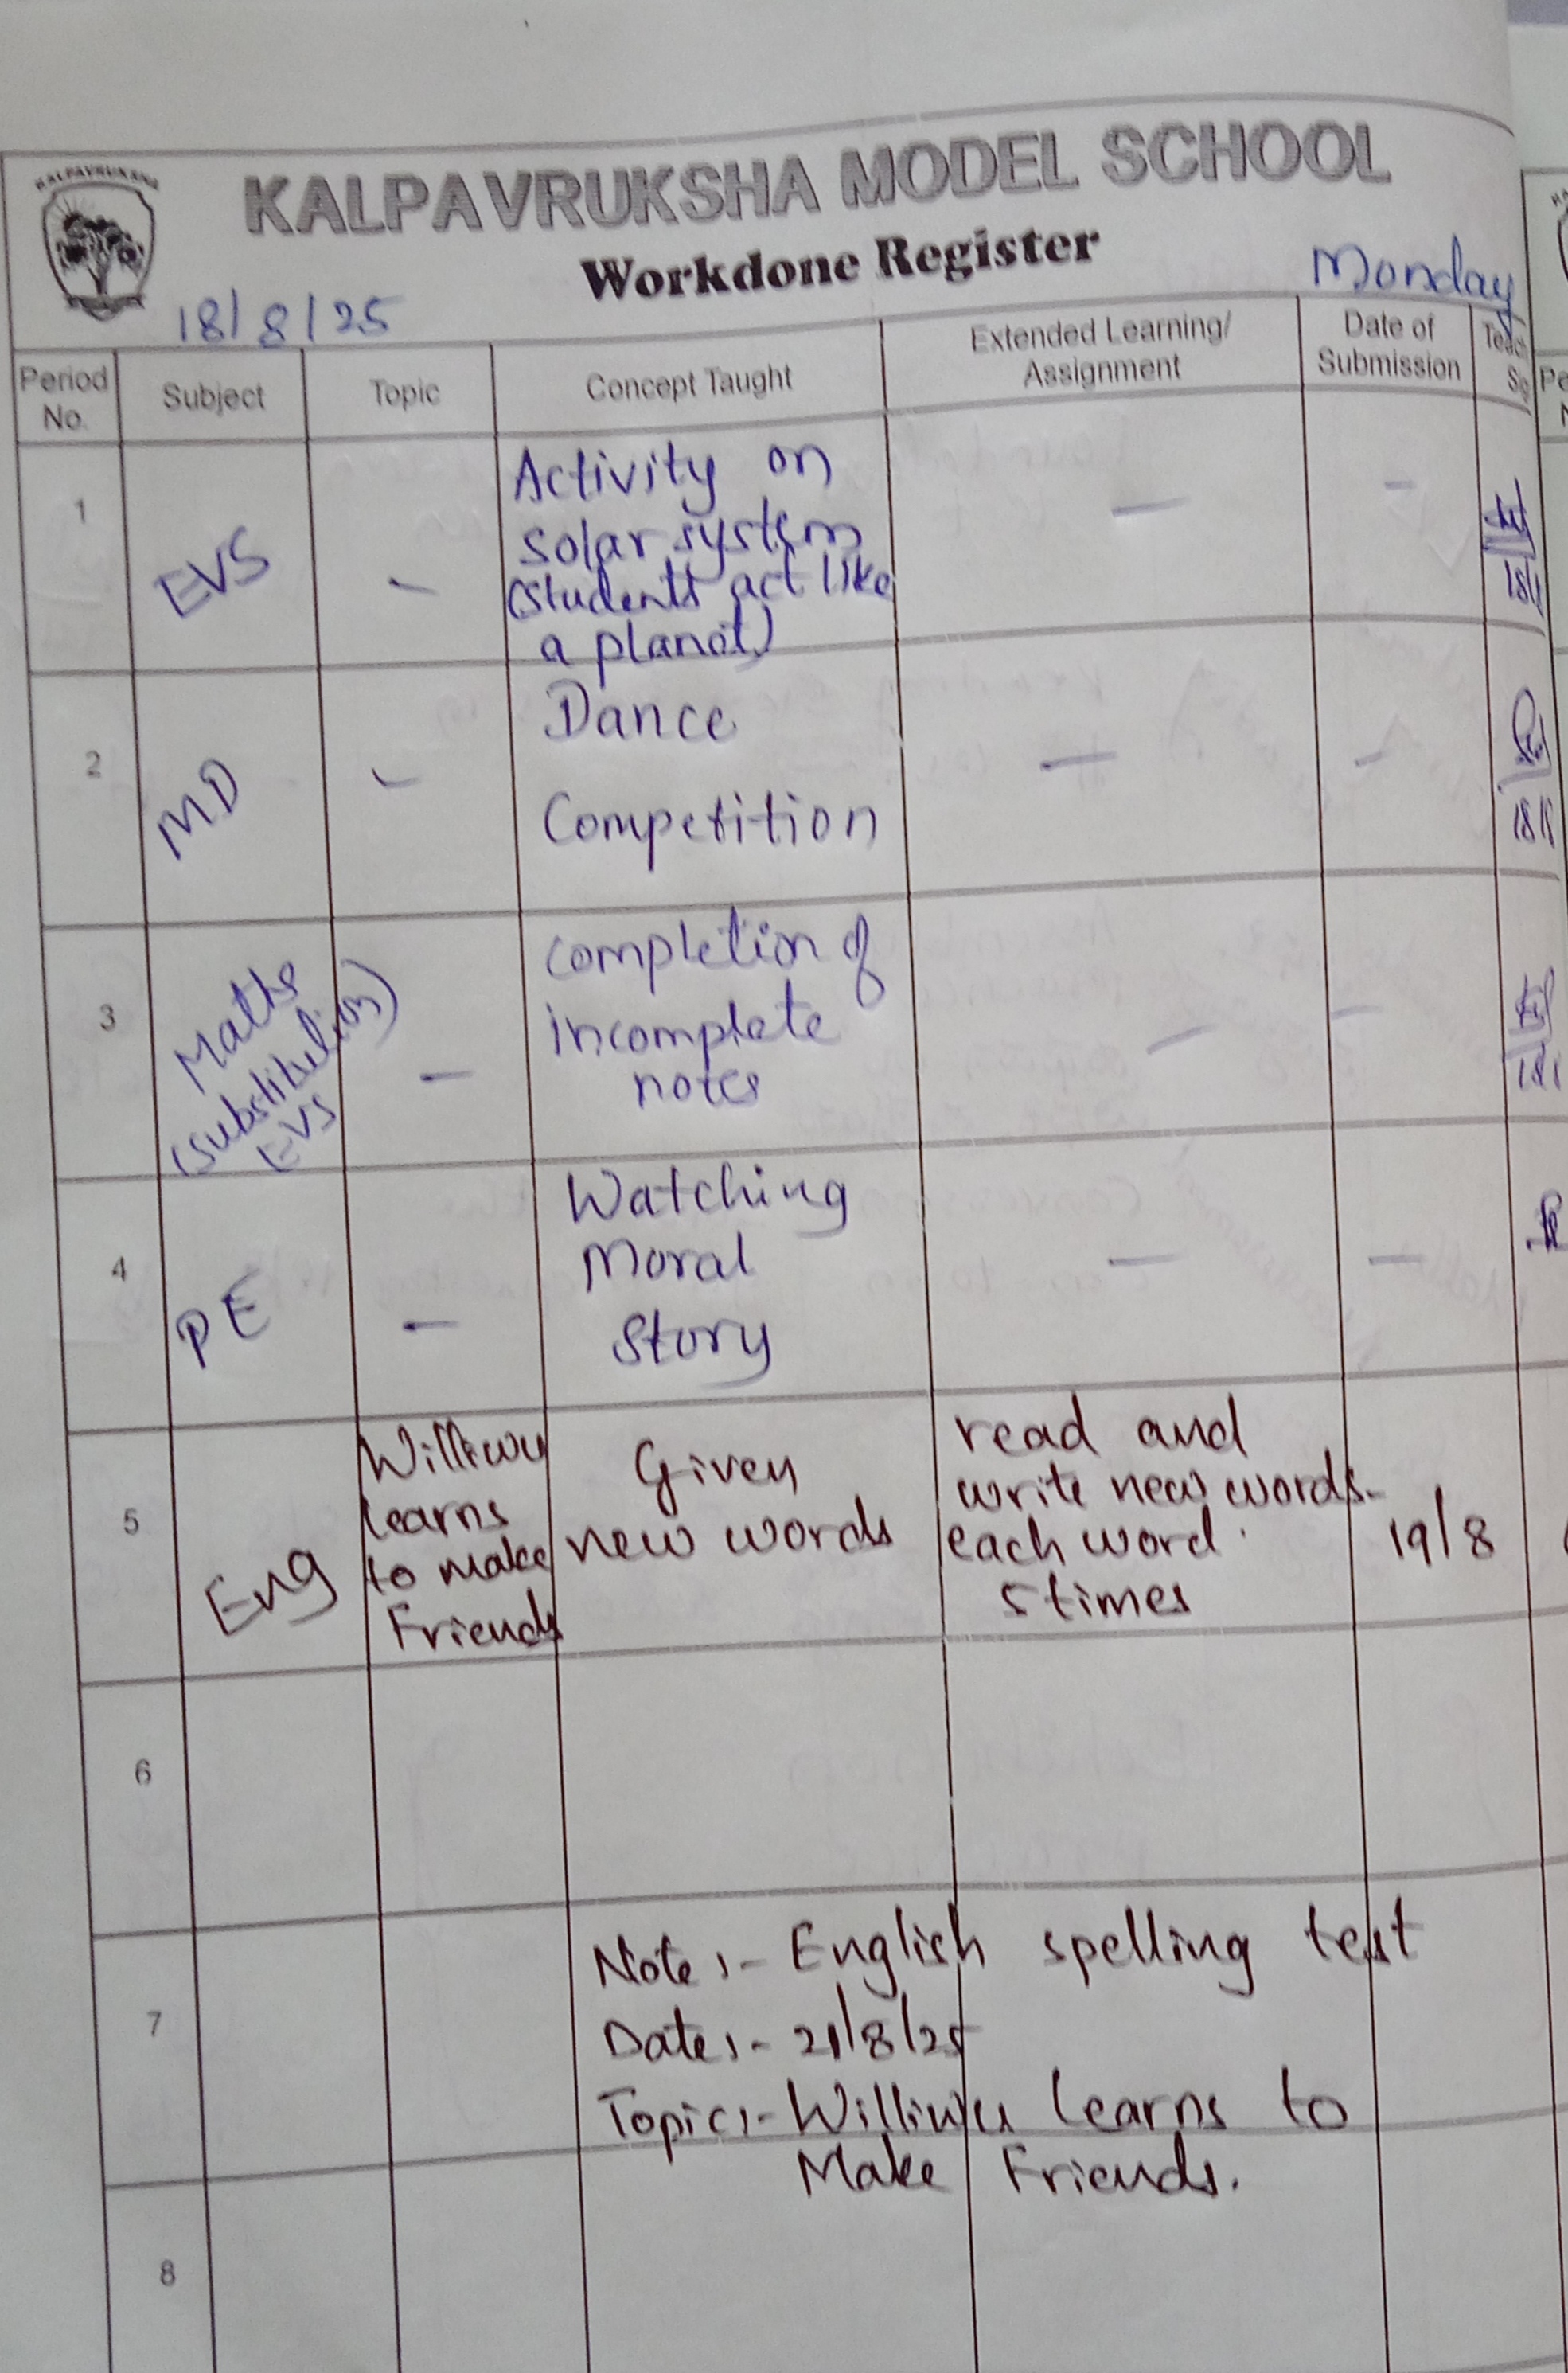 KALPAVRUKSHA
KALPAVRUKSHA MODEL SCHOOL
Workdone Register
18/8/25
Monday
Period No.
Subject
Topic
Concept Taught
Extended Learning/
Assignment
Date of
Submission
1
EVS
-
Activity on
solar system
(students act like
a planet)
-
-
2
M.D
-
Dance
Competition
-
-
3
Maths
(substitution)
EVS
-
completion of
incomplete
notes
-
-
4
PE
-
Watching
Moral
Story
-
-
5
Eng
learns
to make
Friends
Given
new words
read and
write new words-
each word.
5 times
19/8
6
7
Note:- English spelling test
Date:- 21/8/25
Topic:- learns to
Make Friends.
8